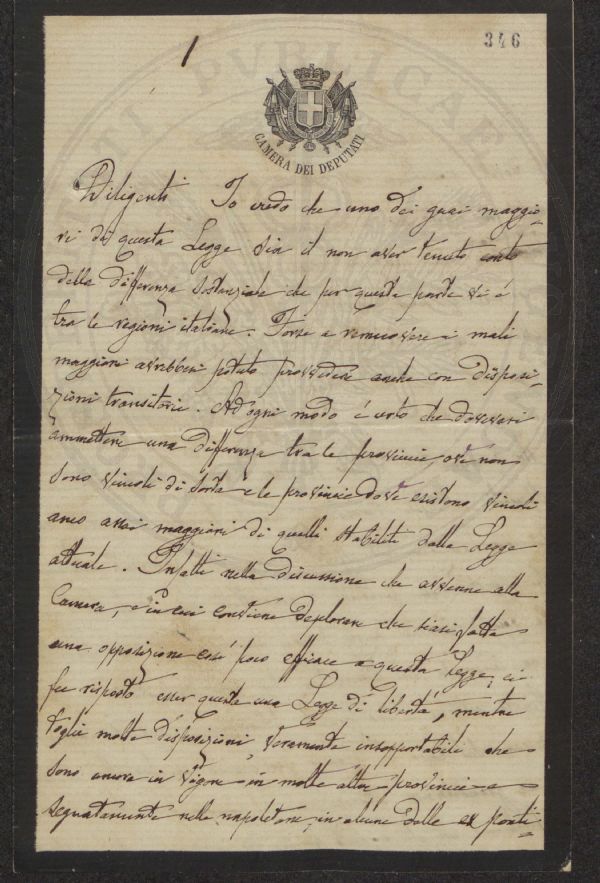 346
CAMERA DEI DEPUTATI
Diligenti Io credo che uno dei guai maggio-
ri di questa Legge sia il non aver tenuto conto
della differenza sostanziale che per questa parte vi è
tra le regioni italiane. Forse a rimuovere i mali
maggiori avrebbesi potuto provvedere anche con disposi-
zioni transitorie. Ad ogni modo è certo che dovevasi
ammettere una differenza tra le provincie ove non
sono vincoli di sorta e le provincie dove esistono vincoli
anco assai maggiori di quelli stabiliti dalla Legge
attuale. Infatti nella discussione che avvenne alla
Camera, e in cui conviene deplorare che siasi fatta
una opposizione così poco efficace a questa legge, ci
fu risposto esser questa una Legge di libertà, mentre
toglie molte disposizioni veramente insopportabili che
sono ancora in vigore in molte altre provincie e
segnatamente nelle napoletane, in alcune delle ex ponti-